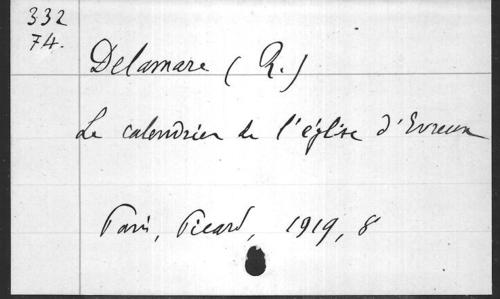 332
74.
Delamare (R.)
Le calendrier de l'église d'Evreux
Paris, Picard, 1919, 8